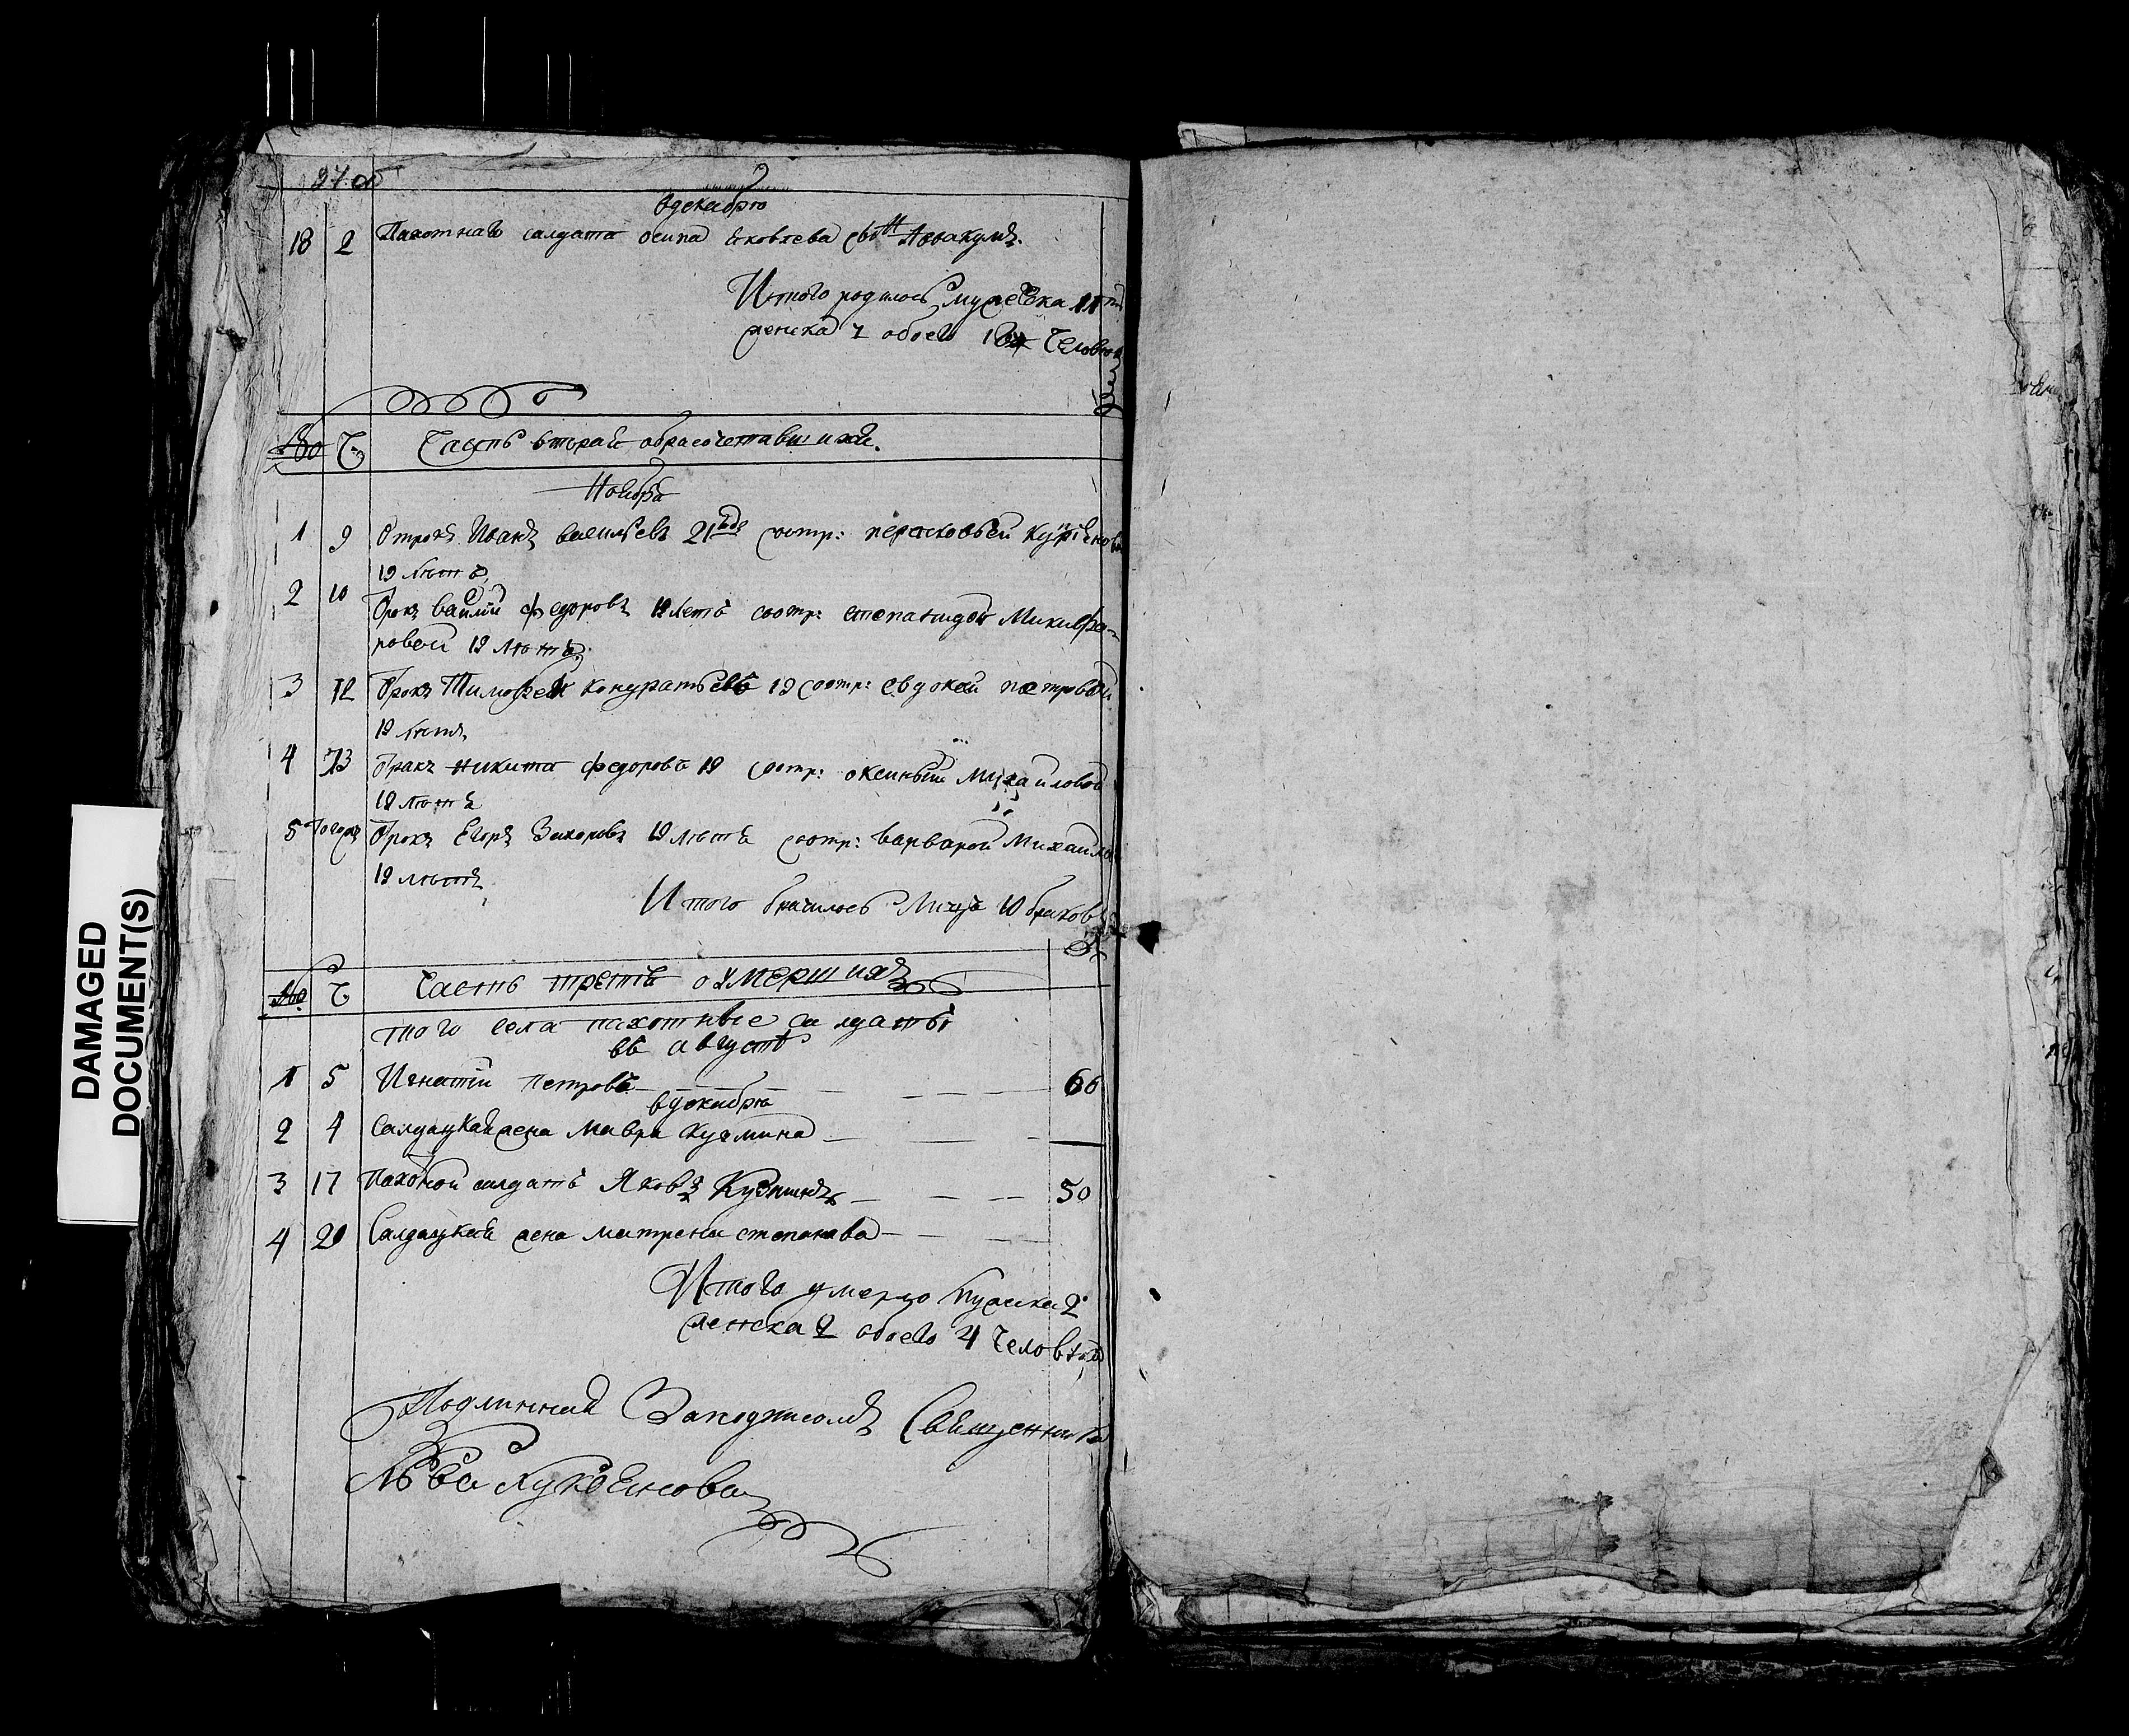 97 об
в декабрѣ
18 2 Пахотнаго салдата осипа яковлева сынъ Аввакумъ.
Итого родилось мужеска 11
женска 7 обоего 18 Человекъ
№ Ч Часть вторая обрасочетавшихся.
Ноября
1 9 Отрокъ Иванъ васильевъ 21 году сотр: перасковьей
19 лѣтъ
2 10 Отрокъ василий федоровъ 19 летъ сотр: степанидой Микифо-
ровой 19 лѣтъ
3 12 Отрокъ Тимофей кондратьевъ 19 сотр: евдокей петровой
19 лѣтъ
4 13 Отракъ никита федоровъ 19 сотр: оксиньей Михайловой
18 лѣтъ
5 того ж Отрокъ Егоръ Захоровъ 19 лѣтъ сотр: варварой Михаило
19 лѣтъ
Итого браков
№ Ч Часть третья о умершихъ
того села пахотные салдаты
въ августѣ
1 5 Игнатий петровъ 66
в декабрѣ
2 4 Салдацкая жена Мавра кузмина
3 17 пахотной салдатъ Яковъ Кузминъ 50
4 29 Салдацкая жена матрена степанава
Итого умерло мужска 2
женска 2 обоего 4 Человѣка
Подлинный Заподписомъ Священника
Льва Лукоянова
DAMAGED
DOCUMENT(S)